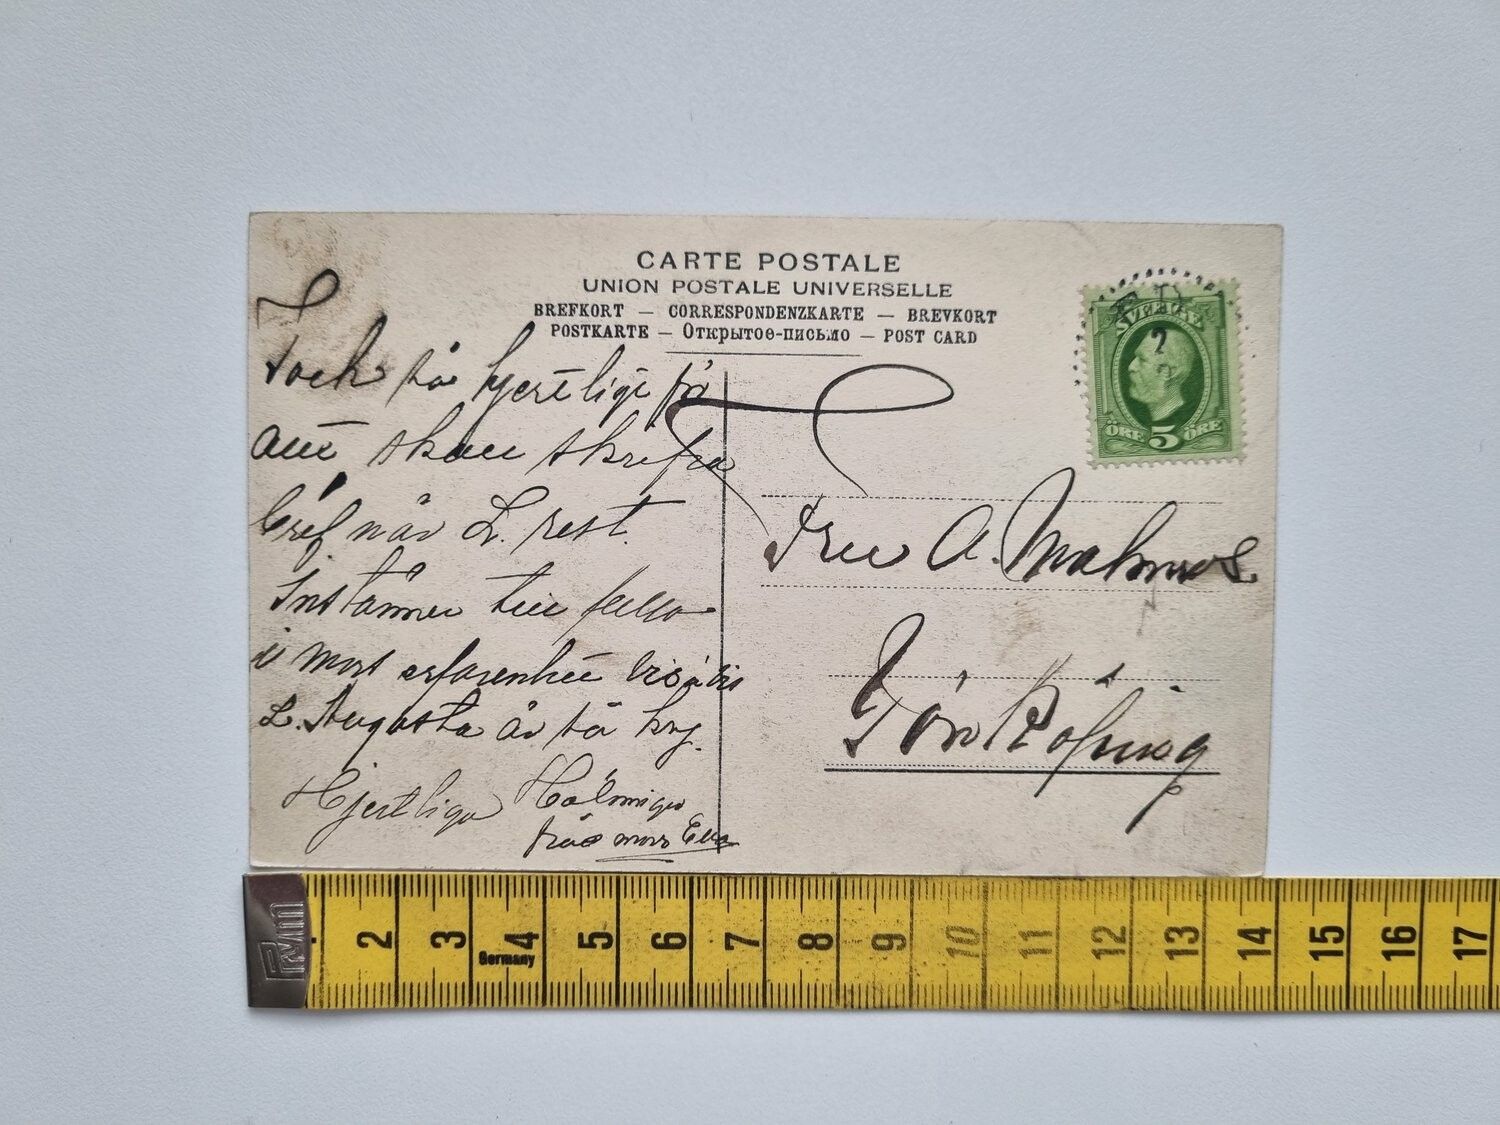 CARTE POSTALE
UNION POSTALE UNIVERSELLE
BREFKORT — CORRESPONDENZKARTE — BREVKORT
POSTKARTE — Открытое-письмо — POST CARD
SVERIGE
2
ÖRE 5 ÖRE
Tack så hjertligt på
att skall skrifva
bref når L. rest.
Instämmer till fullo
i mors erfarenhet vis à vis
L. Augusta är så kry.
Hjertliga Hälsningar
från mors Ella
Fru A. Malmros
Jönköping
PRYM
2 3 4 5 6 7 8 9 10 11 12 13 14 15 16 17
Germany